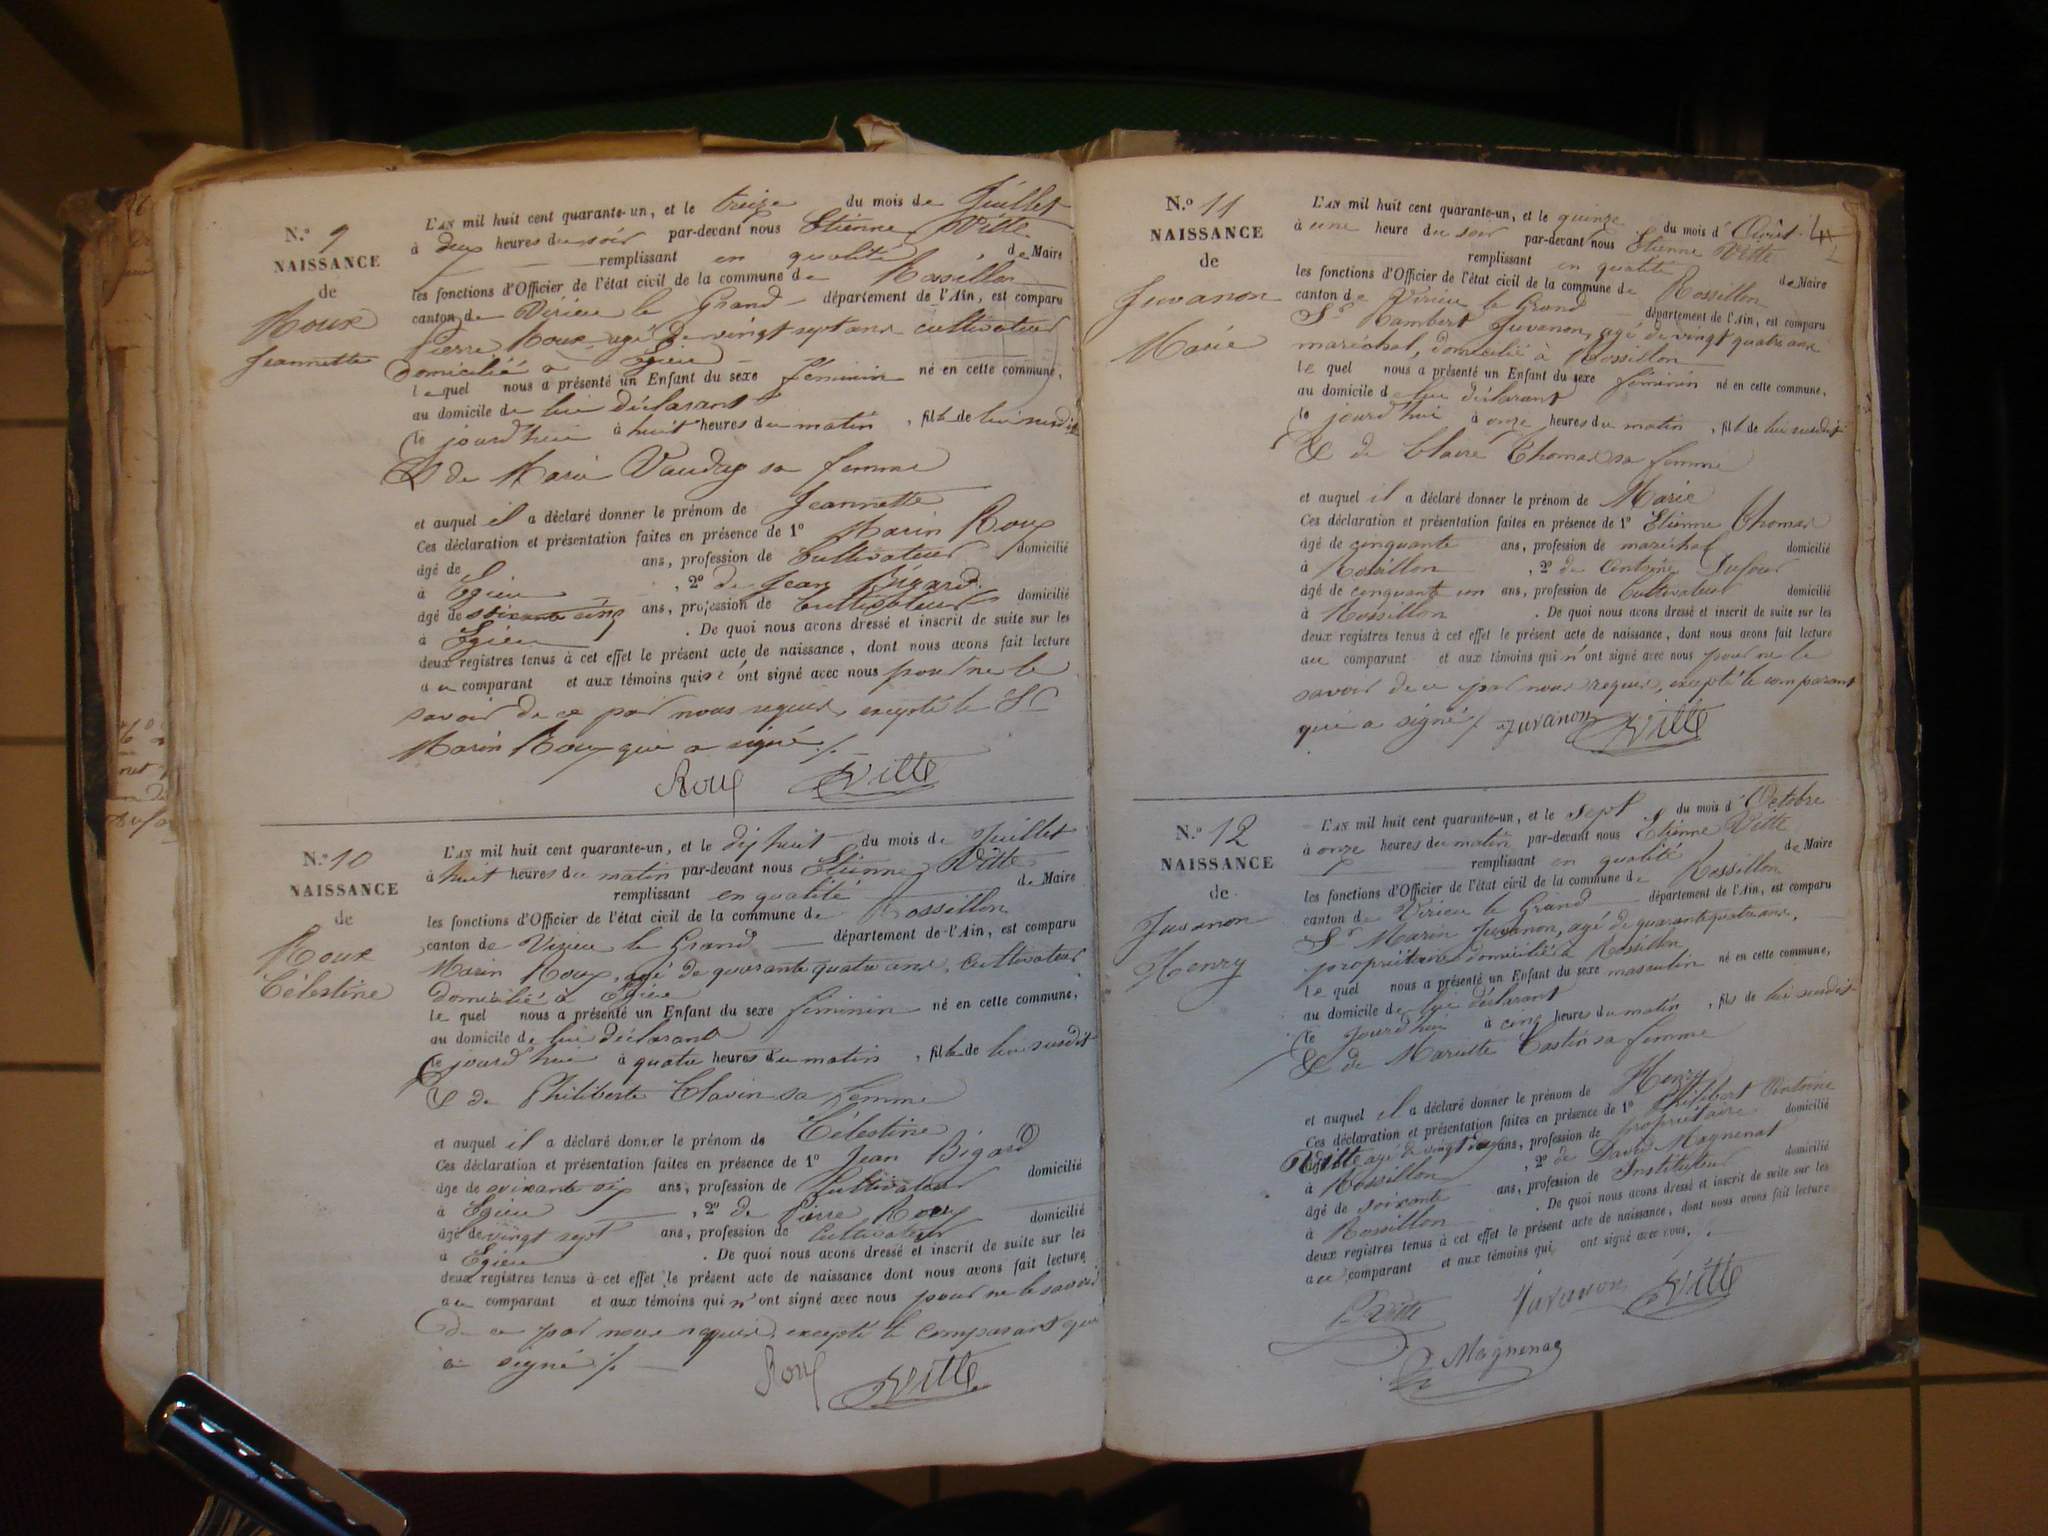 N.º 9
NAISSANCE
de
Roux
Jeannette
L'AN mil huit cent quarante-un, et le treize du mois de Juillet
à deux heures du soir par-devant nous Etienne Vitte
remplissant en qualité de Maire
les fonctions d'Officier de l'état civil de la commune de Rossillon
canton de Virieu le Grand département de l'Ain, est comparu
Pierre Roux agé de vingt sept ans cultivateur
domicilié à Egieu
lequel nous a présenté un Enfant du sexe féminin né en cette commune,
au domicile de lui déclarant
ce jourd'hui à huit heures du matin, fille de lui susdit
& de Marie Vauday sa femme
et auquel il a déclaré donner le prénom de Jeannette
Ces déclaration et présentation faites en présence de 1º Marin Roux
âgé de ans, profession de Cultivateur domicilié
à Egieu, 2º de Jean Bigard
âgé de soixante cinq ans, profession de Cultivateur domicilié
à Egieu. De quoi nous avons dressé et inscrit de suite sur les
deux registres tenus à cet effet le présent acte de naissance, dont nous avons fait lecture
au comparant et aux témoins qui n'ont signé avec nous pour ne le
savoir de ce par nous requis, excepté le Sr
Marin Roux qui a signé ./.
Roux Vitte
N.º 10
NAISSANCE
de
Roux
Célestine
L'AN mil huit cent quarante-un, et le dix huit du mois de Juillet
à huit heures du matin par-devant nous Etienne Vitte
remplissant en qualité de Maire
les fonctions d'Officier de l'état civil de la commune de Rossillon
canton de Virieu le Grand département de l'Ain, est comparu
Marin Roux, agé de quarante quatre ans, cultivateur
domicilié à Egieu
lequel nous a présenté un Enfant du sexe féminin né en cette commune,
au domicile de lui déclarant
ce jourd'hui à quatre heures du matin, fille de lui susdit
& de Philiberte Clavin sa femme
et auquel il a déclaré donner le prénom de Célestine
Ces déclaration et présentation faites en présence de 1º Jean Bigard
âgé de soixante six ans, profession de Cultivateur domicilié
à Egieu, 2º de Pierre Roux
âgé de vingt sept ans, profession de Cultivateur domicilié
à Egieu. De quoi nous avons dressé et inscrit de suite sur les
deux registres tenus à cet effet le présent acte de naissance dont nous avons fait lecture
au comparant et aux témoins qui n'ont signé avec nous pour ne le savoir
de ce par nous requis, excepté le comparant qui
a signé ./.
Roux Vitte
N.º 11
NAISSANCE
de
Juvanon
Marie
L'AN mil huit cent quarante-un, et le quinze du mois d'Août
à une heure du soir par-devant nous Etienne Vitte
remplissant en qualité de Maire
les fonctions d'Officier de l'état civil de la commune de Rossillon
canton de Virieu le Grand département de l'Ain, est comparu
Sr Rambert Juvanon, agé de vingt quatre ans
maréchal, domicilié à Rossillon
lequel nous a présenté un Enfant du sexe féminin né en cette commune,
au domicile de lui déclarant
ce jourd'hui à onze heures du matin, fille de lui susdit
& de Claire Thomas sa femme
et auquel il a déclaré donner le prénom de Marie
Ces déclaration et présentation faites en présence de 1º Etienne Thomas
âgé de cinquante ans, profession de maréchal domicilié
à Rossillon, 2º de Antoine Dufour
âgé de cinquante un ans, profession de Cultivateur domicilié
à Rossillon. De quoi nous avons dressé et inscrit de suite sur les
deux registres tenus à cet effet le présent acte de naissance, dont nous avons fait lecture
au comparant et aux témoins qui n'ont signé avec nous pour ne le
savoir de ce par nous requis, excepté le comparant
qui a signé ./. Juvanon Vitte
N.º 12
NAISSANCE
de
Juvanon
Henry
L'AN mil huit cent quarante-un, et le sept du mois d'Octobre
à onze heures du matin par-devant nous Etienne Vitte
remplissant en qualité de Maire
les fonctions d'Officier de l'état civil de la commune de Rossillon
canton de Virieu le Grand département de l'Ain, est comparu
Sr Marin Juvanon, agé de quarante quatre ans,
propriétaire domicilié à Rossillon
lequel nous a présenté un Enfant du sexe masculin né en cette commune,
au domicile de lui déclarant
ce jourd'hui à cinq heures du matin, fils de lui susdit
& de Mariette Castin sa femme
et auquel il a déclaré donner le prénom de Henry
Ces déclaration et présentation faites en présence de 1º Philibert Antoine
Vitte agé de vingt ans, profession de propriétaire domicilié
à Rossillon, 2º de David Magnenat
âgé de soixante ans, profession de Instituteur domicilié
à Rossillon. De quoi nous avons dressé et inscrit de suite sur les
deux registres tenus à cet effet le présent acte de naissance, dont nous avons fait lecture
au comparant et aux témoins qui ont signé avec nous.
Vitte Juvanon Vitte
Magnenat